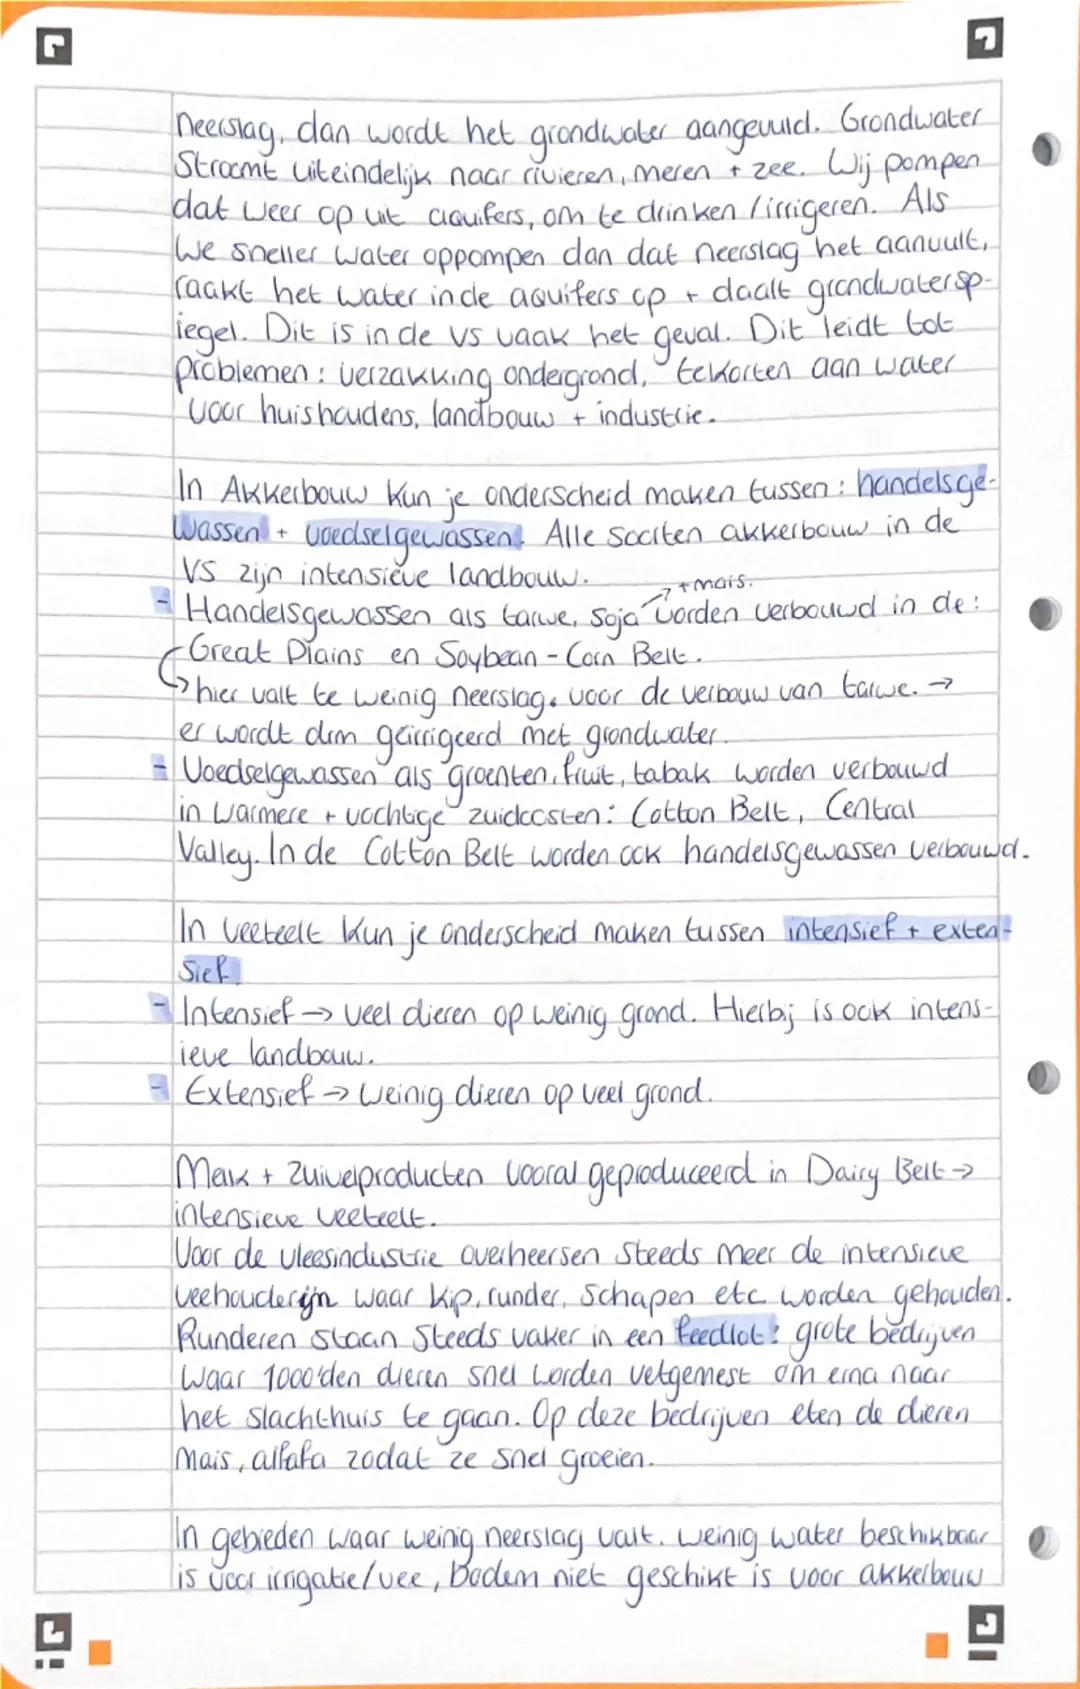 neerslag, dan wordt het grondwater aangevuld. Grondwater
Stroomt uiteindelijk naar rivieren, meren + zee. Wij pompen
dat weer op uit aquifers, om te drinken / irrigeren. Als
We sneller water oppompen dan dat neerslag het aanvult,
raakt het water in de aquifers op + daalt grondwatersp-
iegel. Dit is in de VS vaak het geval. Dit leidt tot
problemen: verzakking ondergrond, tekorten aan water
voor huishoudens, landbouw + industrie.
In Akkerbouw kun je onderscheid maken tussen: handelsge-
wassen + voedselgewassen. Alle soorten akkerbouw in de
VS zijn intensieve landbouw.
+ mais.
- Handelsgewassen als tarwe, soja worden verbouwd in de:
Great Plains en Soybean - Corn Belt.
↳ hier valt te weinig neerslag. voor de verbouw van tarwe. →
er wordt dan geïrrigeerd met grondwater.
- Voedselgewassen als groenten, fruit, tabak worden verbouwd
in warmere + vochtige zuidoosten: Cotton Belt, Central
Valley. In de Cotton Belt worden ook handelsgewassen verbouwd.
In veeteelt kun je onderscheid maken tussen intensief + exten-
sief.
- Intensief → veel dieren op weinig grond. Hierbij is ook intens-
ieve landbouw.
- Extensief → weinig dieren op veel grond.
Melk + zuivelproducten vooral geproduceerd in Dairy Belt →
intensieve veeteelt.
Voor de vleesindustrie overheersen steeds meer de intensieve
veehouderijn waar kip, runder, schapen etc worden gehouden.
Runderen staan steeds vaker in een feedlot: grote bedrijven
waar 1000'den dieren snel worden vetgemest om erna naar
het slachthuis te gaan. Op deze bedrijven eten de dieren
mais, alfafa zodat ze snel groeien.
In gebieden waar weinig neerslag valt, weinig water beschikbaar
is voor irrigatie/vee, bodem niet geschikt is voor akkerbouw